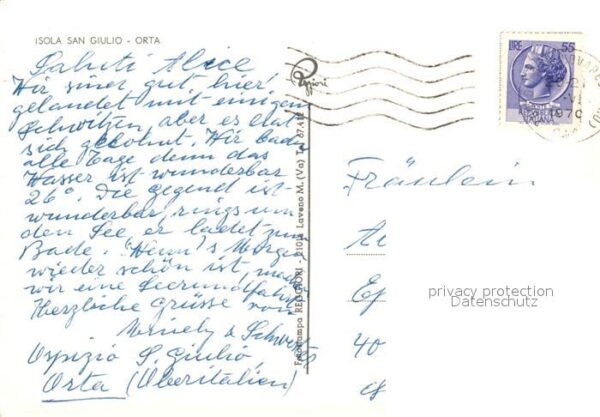 ISOLA SAN GIULIO - ORTA
Saluti Alice
Wir sind gut hier
gelandet mit einigem
Schwitzen, aber es hat
sich gelohnt. Wir baden
alle Tage denn das
Wasser ist wunderbar
26° Die Gegend ist
wunderbar, rings um
den See er ladet zum
Bade. Wenn's Morgen
wieder schön ist, machen
wir eine Seerundfahrt
Herzliche Grüsse von
& Schwester
Ospizio S. Giulio
Orta (Oberitalien)
Fotostampa REGGIORI - 21014 Laveno M. (Va) T. 67.412
Reggiori
LIRE 55
1970
Fräulein
40
privacy protection
Datenschutz